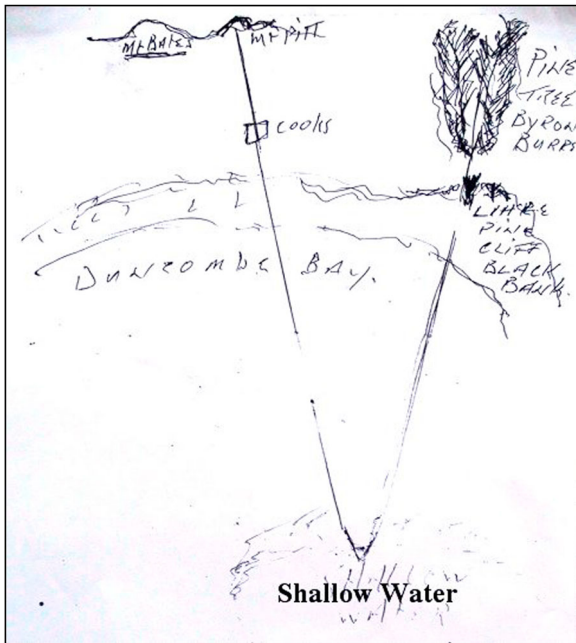 Mt BATES
Mt PITT
COOKS
PINE
TREE
BYRON
BURRS
PINE
CLIFF
BLACK
BANK.
DUNCOMBE BAY.
Shallow Water